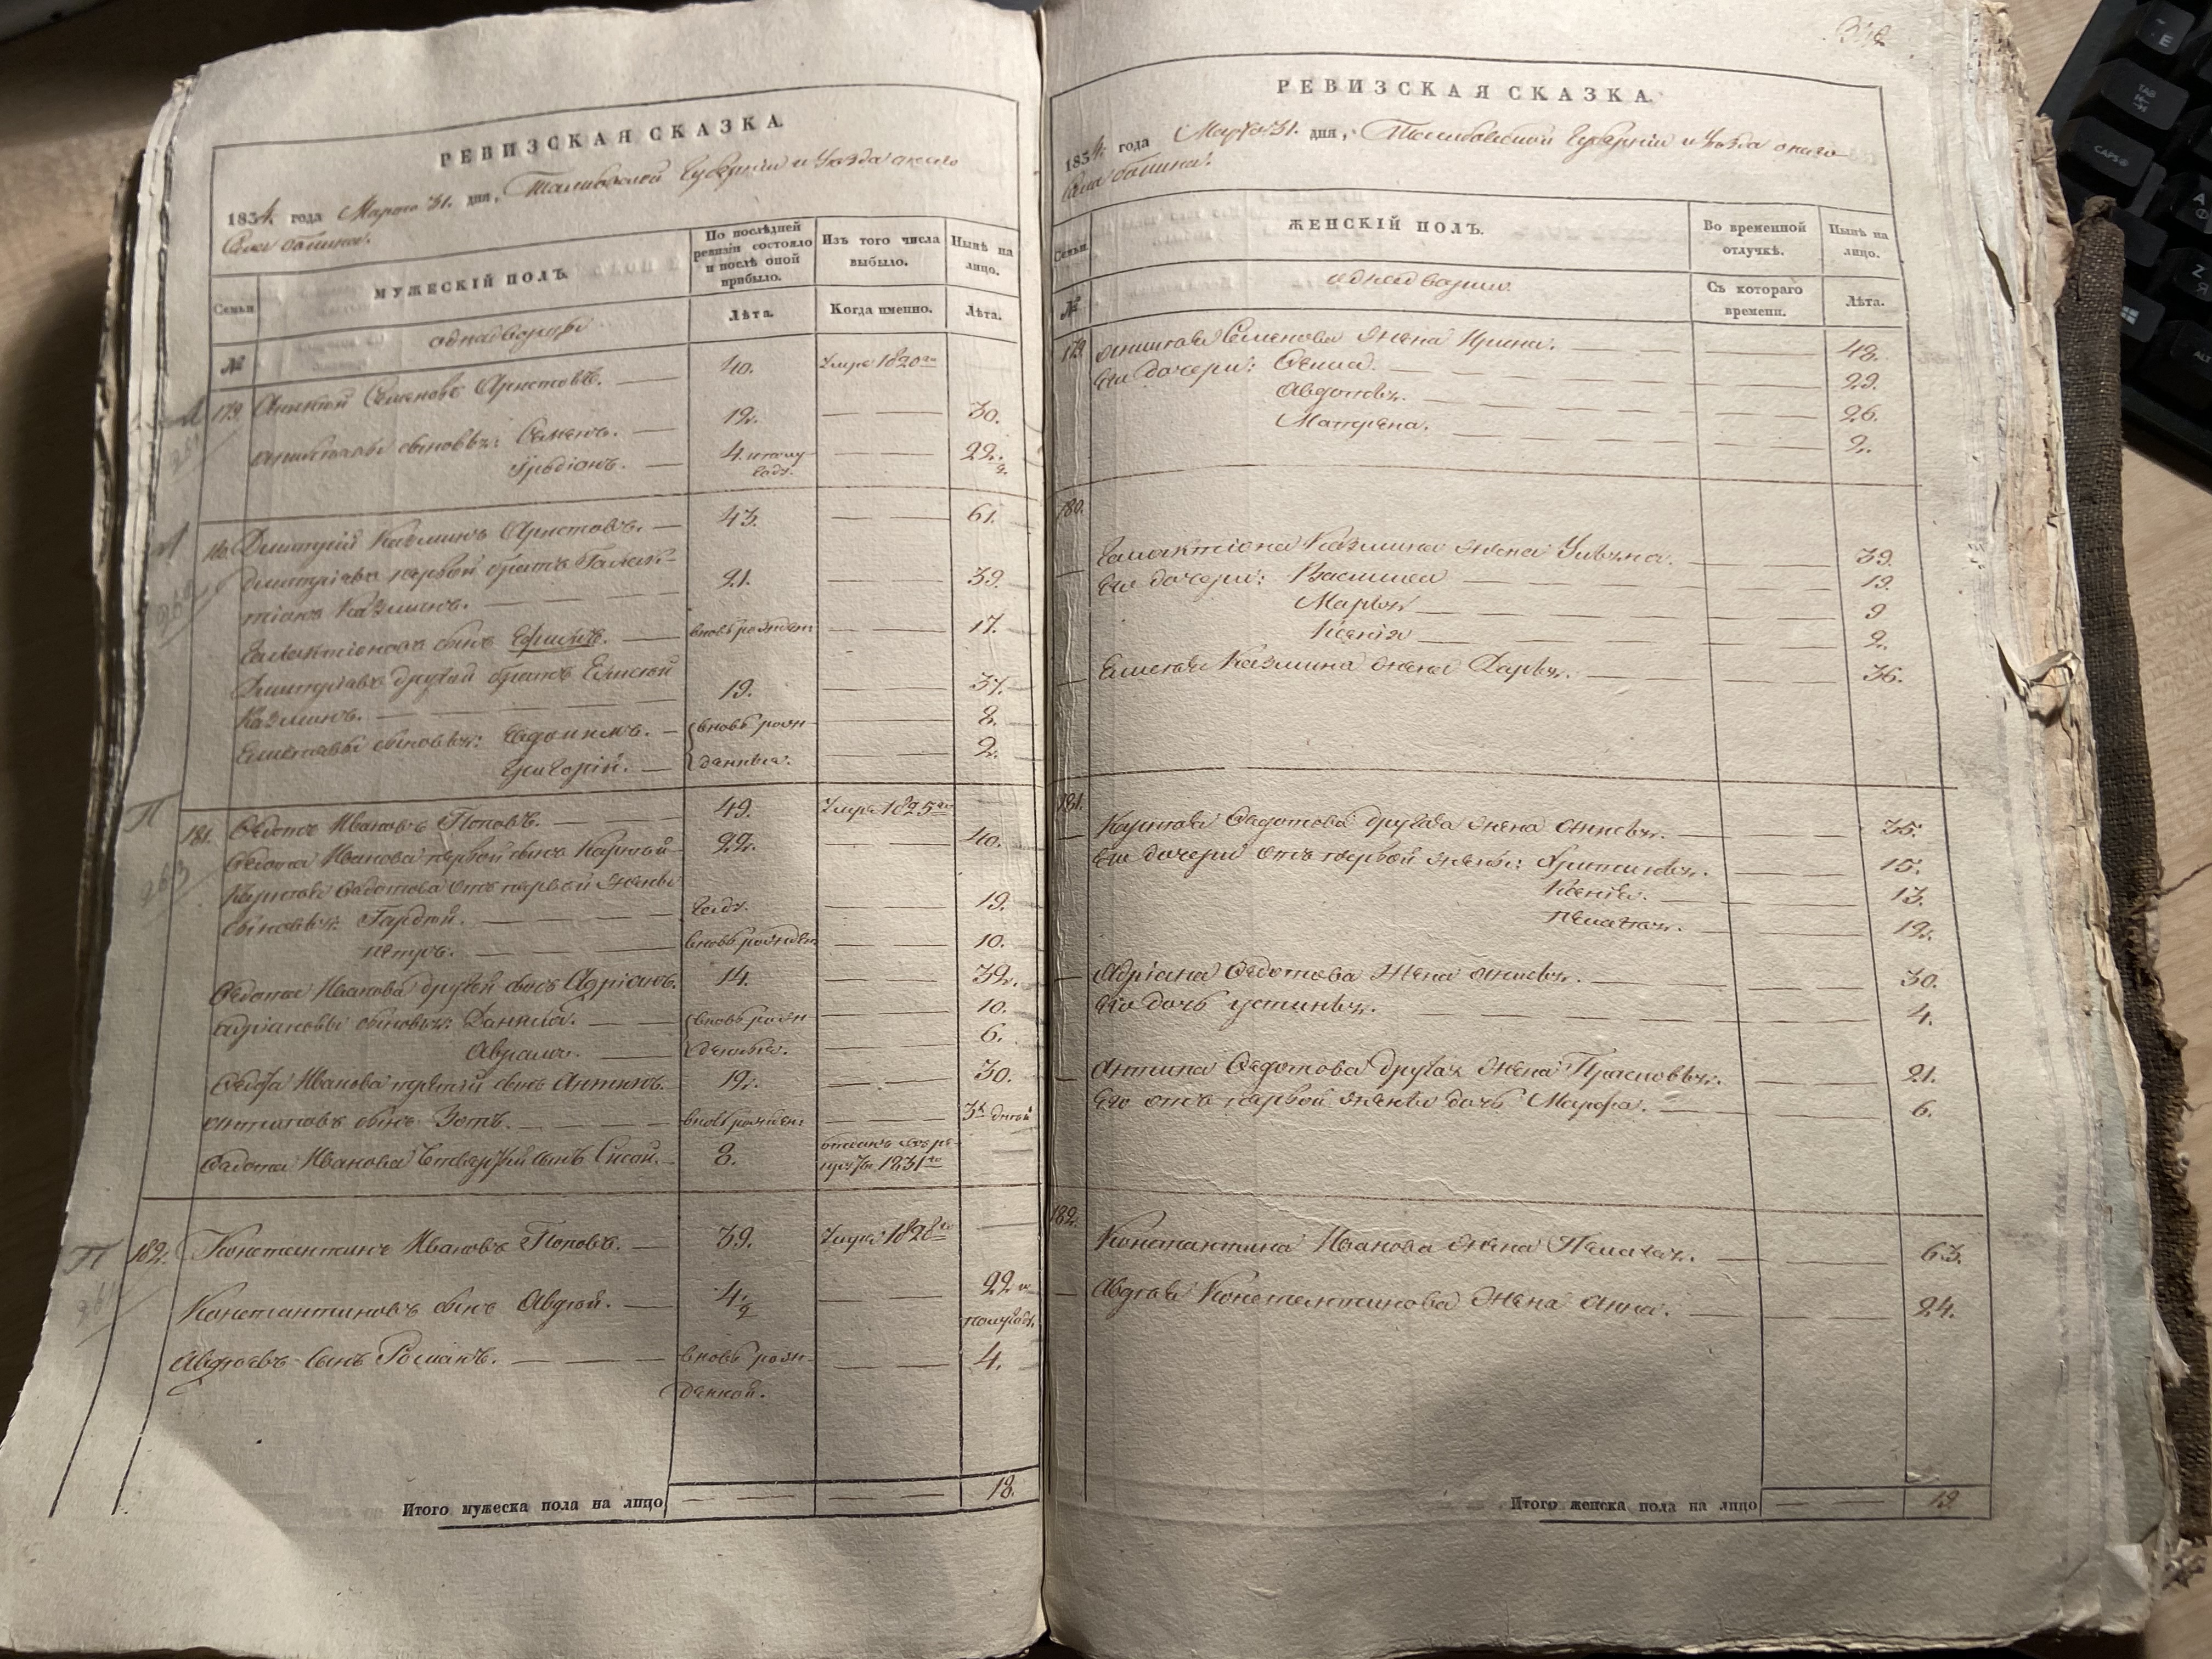 РЕВИЗСКАЯ СКАЗКА.
1834. года Марта 31. дня, Тамбовской Губернии и Уезда
Села
Семьи
МУЖЕСКІЙ ПОЛЪ.
По послѣдней ревизіи состояло и послѣ оной прибыло.
Изъ того числа выбыло.
Нынѣ на лицо.
№
однодворцы
Лѣта.
Когда именно.
Лѣта.
179. Семеновъ Аристовъ. 40. Умре 1820го
сыновья: Семенъ. 12. 30.
4. 22.
180. Дмитрій Казминъ Аристовъ. 43. 61.
Дмитріевъ первой братъ Галак-
тіонъ Казминъ. 21. 39.
Галактіоновъ сынъ Ефимъ. вновь рожден 17.
Дмитріевъ другой братъ Елисей
Казминъ. 19. 37.
Елисеевы сыновья: Евдокимъ. вновь рож- 8.
Григорій. денныя. 2.
181. Федотъ Ивановъ Поповъ. 49. Умре 1825го
Федота Иванова первой сынъ Карпъй 22. 40.
Федотова отъ первой жены
сыновья: Гордѣй. году. 19.
Петръ. вновь рожден 10.
Федота Иванова другой сынъ Адріанъ. 14. 32.
Адріановы сыновья: Данила. вновь рож 10.
Аврамъ. денныя. 6.
Федота Иванова третій сынъ Антипъ. 12. 30.
Антиповъ сынъ Зотъ. вновь рожден: 3х дней
Федота Иванова четвертый сынъ Сысой. 8. 1831го
182. Константинъ Ивановъ Поповъ. 39. Умре 1828го
Константиновъ сынъ Авдѣй. 4 1/2 22 полугоду.
Авдѣевъ сынъ Романъ. вновь рож- 4.
денной.
Итого мужеска пола на лицо 18.
РЕВИЗСКАЯ СКАЗКА.
1834. года Марта 31. дня, Тамбовской Губерніи и Уезда
Села
Семьи.
ЖЕНСКІЙ ПОЛЪ.
Во временной отлучкѣ.
Нынѣ на лицо.
№
однодворцы.
Съ котораго времени.
Лѣта.
179. Семенова жена Ирина. 48.
Его дочери: 29.
Авдотья. 26.
Матрена. 2.
180.
Галактіона Казмина жена Ульяна. 39.
Его дочери: Василиса 19.
Марья 9
Ксенія 2.
Елисея Казмина жена Дарья. 36.
181.
Федотова другая жена Анисья. 35.
Его дочери отъ первой жены: 15.
Ксенія. 13.
Пелагея. 12.
Адріана Федотова жена Анисья. 30.
Его дочь Устинья. 4.
Антипа Федотова другая жена Прасковья. 21.
Его отъ первой жены дочь Марфа. 6.
182.
Константина Иванова жена Пелагея. 63.
Авдѣя Константинова жена Анна. 24.
Итого женска пола на лицо 19.